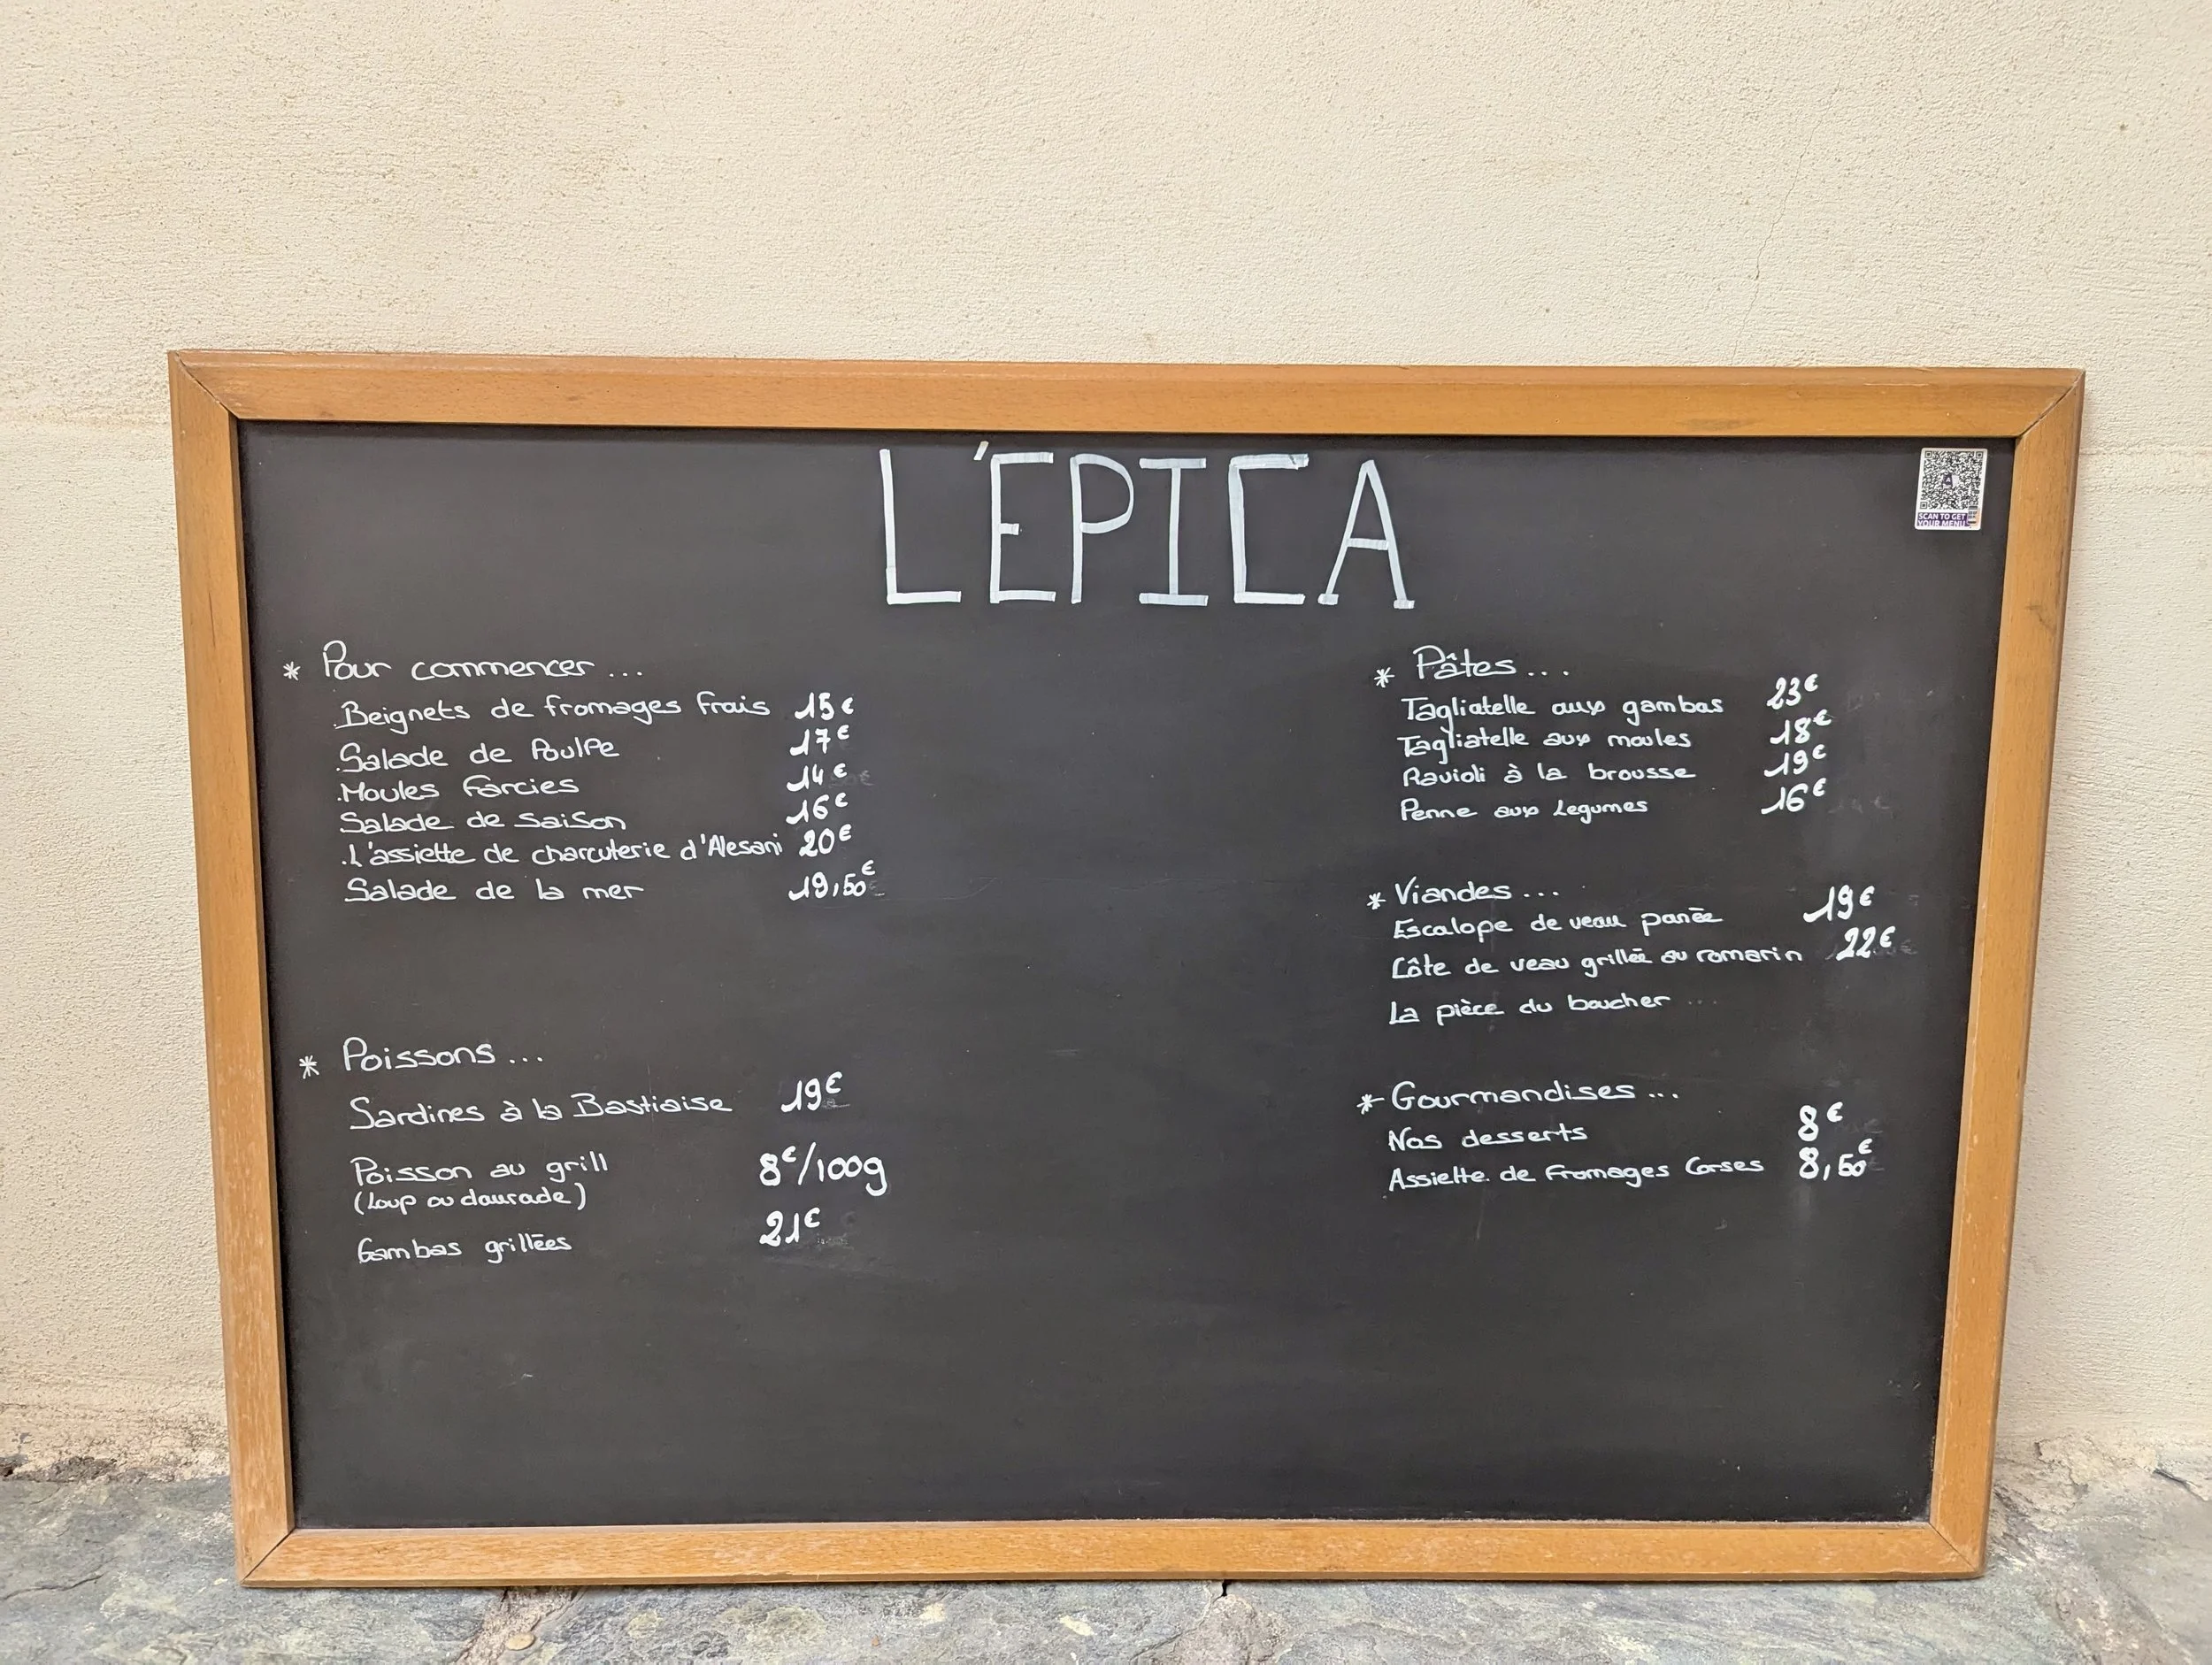 L'ÉPICA
SCAN TO GET
YOUR MENU
* Pour commencer ...
.Beignets de fromages frais 15€
.Salade de Poulpe 17€
.Moules farcies 14€
Salade de saison 16€
.L'assiette de charcuterie d'Alesani 20€
Salade de la mer 19,50€
* Poissons ...
Sardines à la Bastiaise 19€
Poisson au grill 8€/100g
(Loup ou daurade)
Gambas grillées 21€
* Pâtes ...
Tagliatelle aux gambas 23€
Tagliatelle aux moules 18€
Ravioli à la brousse 19€
Penne aux Legumes 16€
* Viandes ...
Escalope de veau panée 19€
Côte de veau grillée au romarin 22€
La pièce du boucher ...
* Gourmandises ...
Nos desserts 8€
Assiette de fromages Corses 8,50€